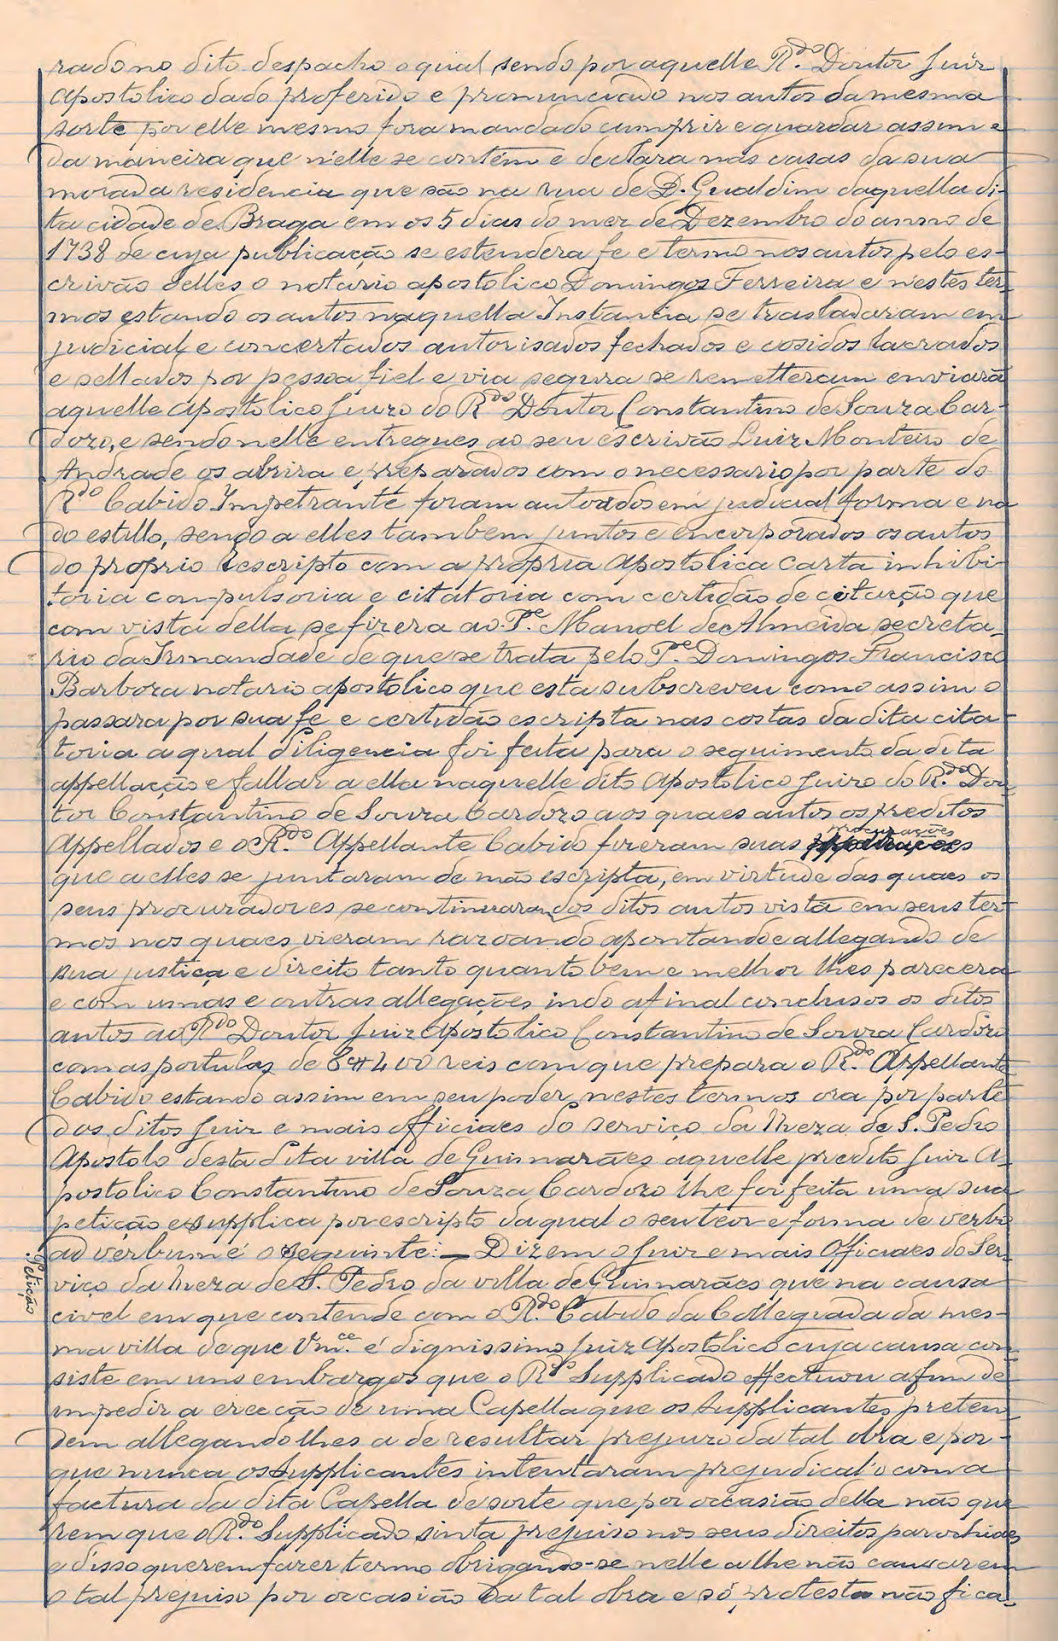 rado no dito despacho o qual sendo por aquelle R.do Doutor Juiz
Apostolico dado proferido e pronunciado nos autos da mesma
sorte por elle mesmo fora mandado cumprir e guardar assim e
da maneira que n'elle se contêm e declara nas casas da sua
morada residencia que são na rua de D. Gualdim daquella di-
ta cidade de Braga em os 5 dias do mez de Dezembro do anno de
1738 de cuja publicação se estendera fe e termo nos autos pelo es-
crivão delles o notario apostolico Domingos Ferreira e n'estes ter-
mos estando os autos naquella Instancia se trasladaram em
judicial e concertados autorisados fechados e cosidos lacrados
e sellados por pessoa fiel e via segura se remetteram enviara
aquelle Apostolico Juizo do R.do Doutor Constantino de Souza Car-
dozo, e sendo nelle entregues ao seu escrivão Luiz Monteiro de
Andrade os abrira e preparados com o necessario por parte do
R.do Cabido Impetrante foram autoados em judicial forma e no
do estillo, sendo a elles tambem juntos e encorporados os autos
do proprio Rescripto com a propria Apostolica Carta inhibi-
toria compulsoria e citatoria com certidão de citação que
com vista della se fizera ao P.e Manoel de Almeida secreta-
rio da Irmandade de que se trata pelo P.e Domingos Francisco
Barboza notario apostolico que esta subscreveu como assim o
passara por sua fe e certidão escripta nas costas da dita cita-
toria a qual diligencia foi feita para o seguimento da dita
appellação e fallar a ella naquelle dito Apostolico Juizo do R.do Dou-
tor Constantino de Souza Cardozo aos quaes autos os preditos
Appellados e o R.do Appellante Cabido fizeram suas procurações
que a elles se juntaram de mão escripta, em virtude das quaes os
seus procuradores se continuaram dos ditos autos vista em seus ter-
mos nos quaes vieram razoando apontando e allegando de
sua justiça e direito tanto quanto bem e melhor lhes parecera
e com umas e outras allegações indo afinal conclusos os ditos
autos ao R.do Doutor Juiz Apostolico Constantino de Souza Cardozo
com asportulas de 8#400 reis com que prepara o R.do Appellante
Cabido estando assim em seu poder nestes termos ora por parte
dos ditos Juiz e mais officiaes do serviço da Meza de S. Pedro
Apostolo desta dita villa de Guimarães aquelle predito Juiz A-
postolico Constantino de Souza Cardozo lhe foi feita uma sua
petição e supplica por escripto da qual o seu teor e forma de verbo
ad verbum é o seguinte: — Dizem o Juiz e mais Officiaes do Ser-
Petição
viço da Meza de S. Pedro da villa de Guimarães que na causa
civel em que contende com o R.do Cabido da Collegiada da mes-
ma villa de que Vm.ce é dignissimo Juiz Apostolico cuja causa con-
siste em uns embargos que o R.do Supplicado effectuou afim de
impedir a erecção de uma Capella que os Supplicantes preten-
dem allegando lhes a de resultar prejuizo da tal obra e por-
que nunca os Supplicantes intentaram prejudical'o com a
factura da dita Capella de sorte que por occasião della não que
rem que o R.do Supplicado sinta prejuiso nos seus direitos parochiaes
e disso querem fazer termo obrigando-se nelle a lhe não causarem
o tal prejuiso por occasião da tal obra e só protesta não fica-